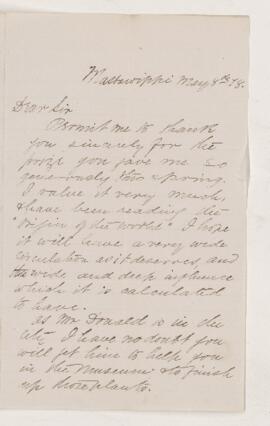 Mattawippi May 8th 78.
Dear Sir
Permit me to thank
you sincerely for the
prize you gave me so
generously this spring.
I value it very much,
& have been reading the
"Origin of the World". I hope
it will have a very wide
circulation as it deserves, and
the wide and deep influence
which it is calculated
to have.
As Mr Donald is in the
City I have no doubt you
will get him to help you
in the Museum & to finish
up those plants.